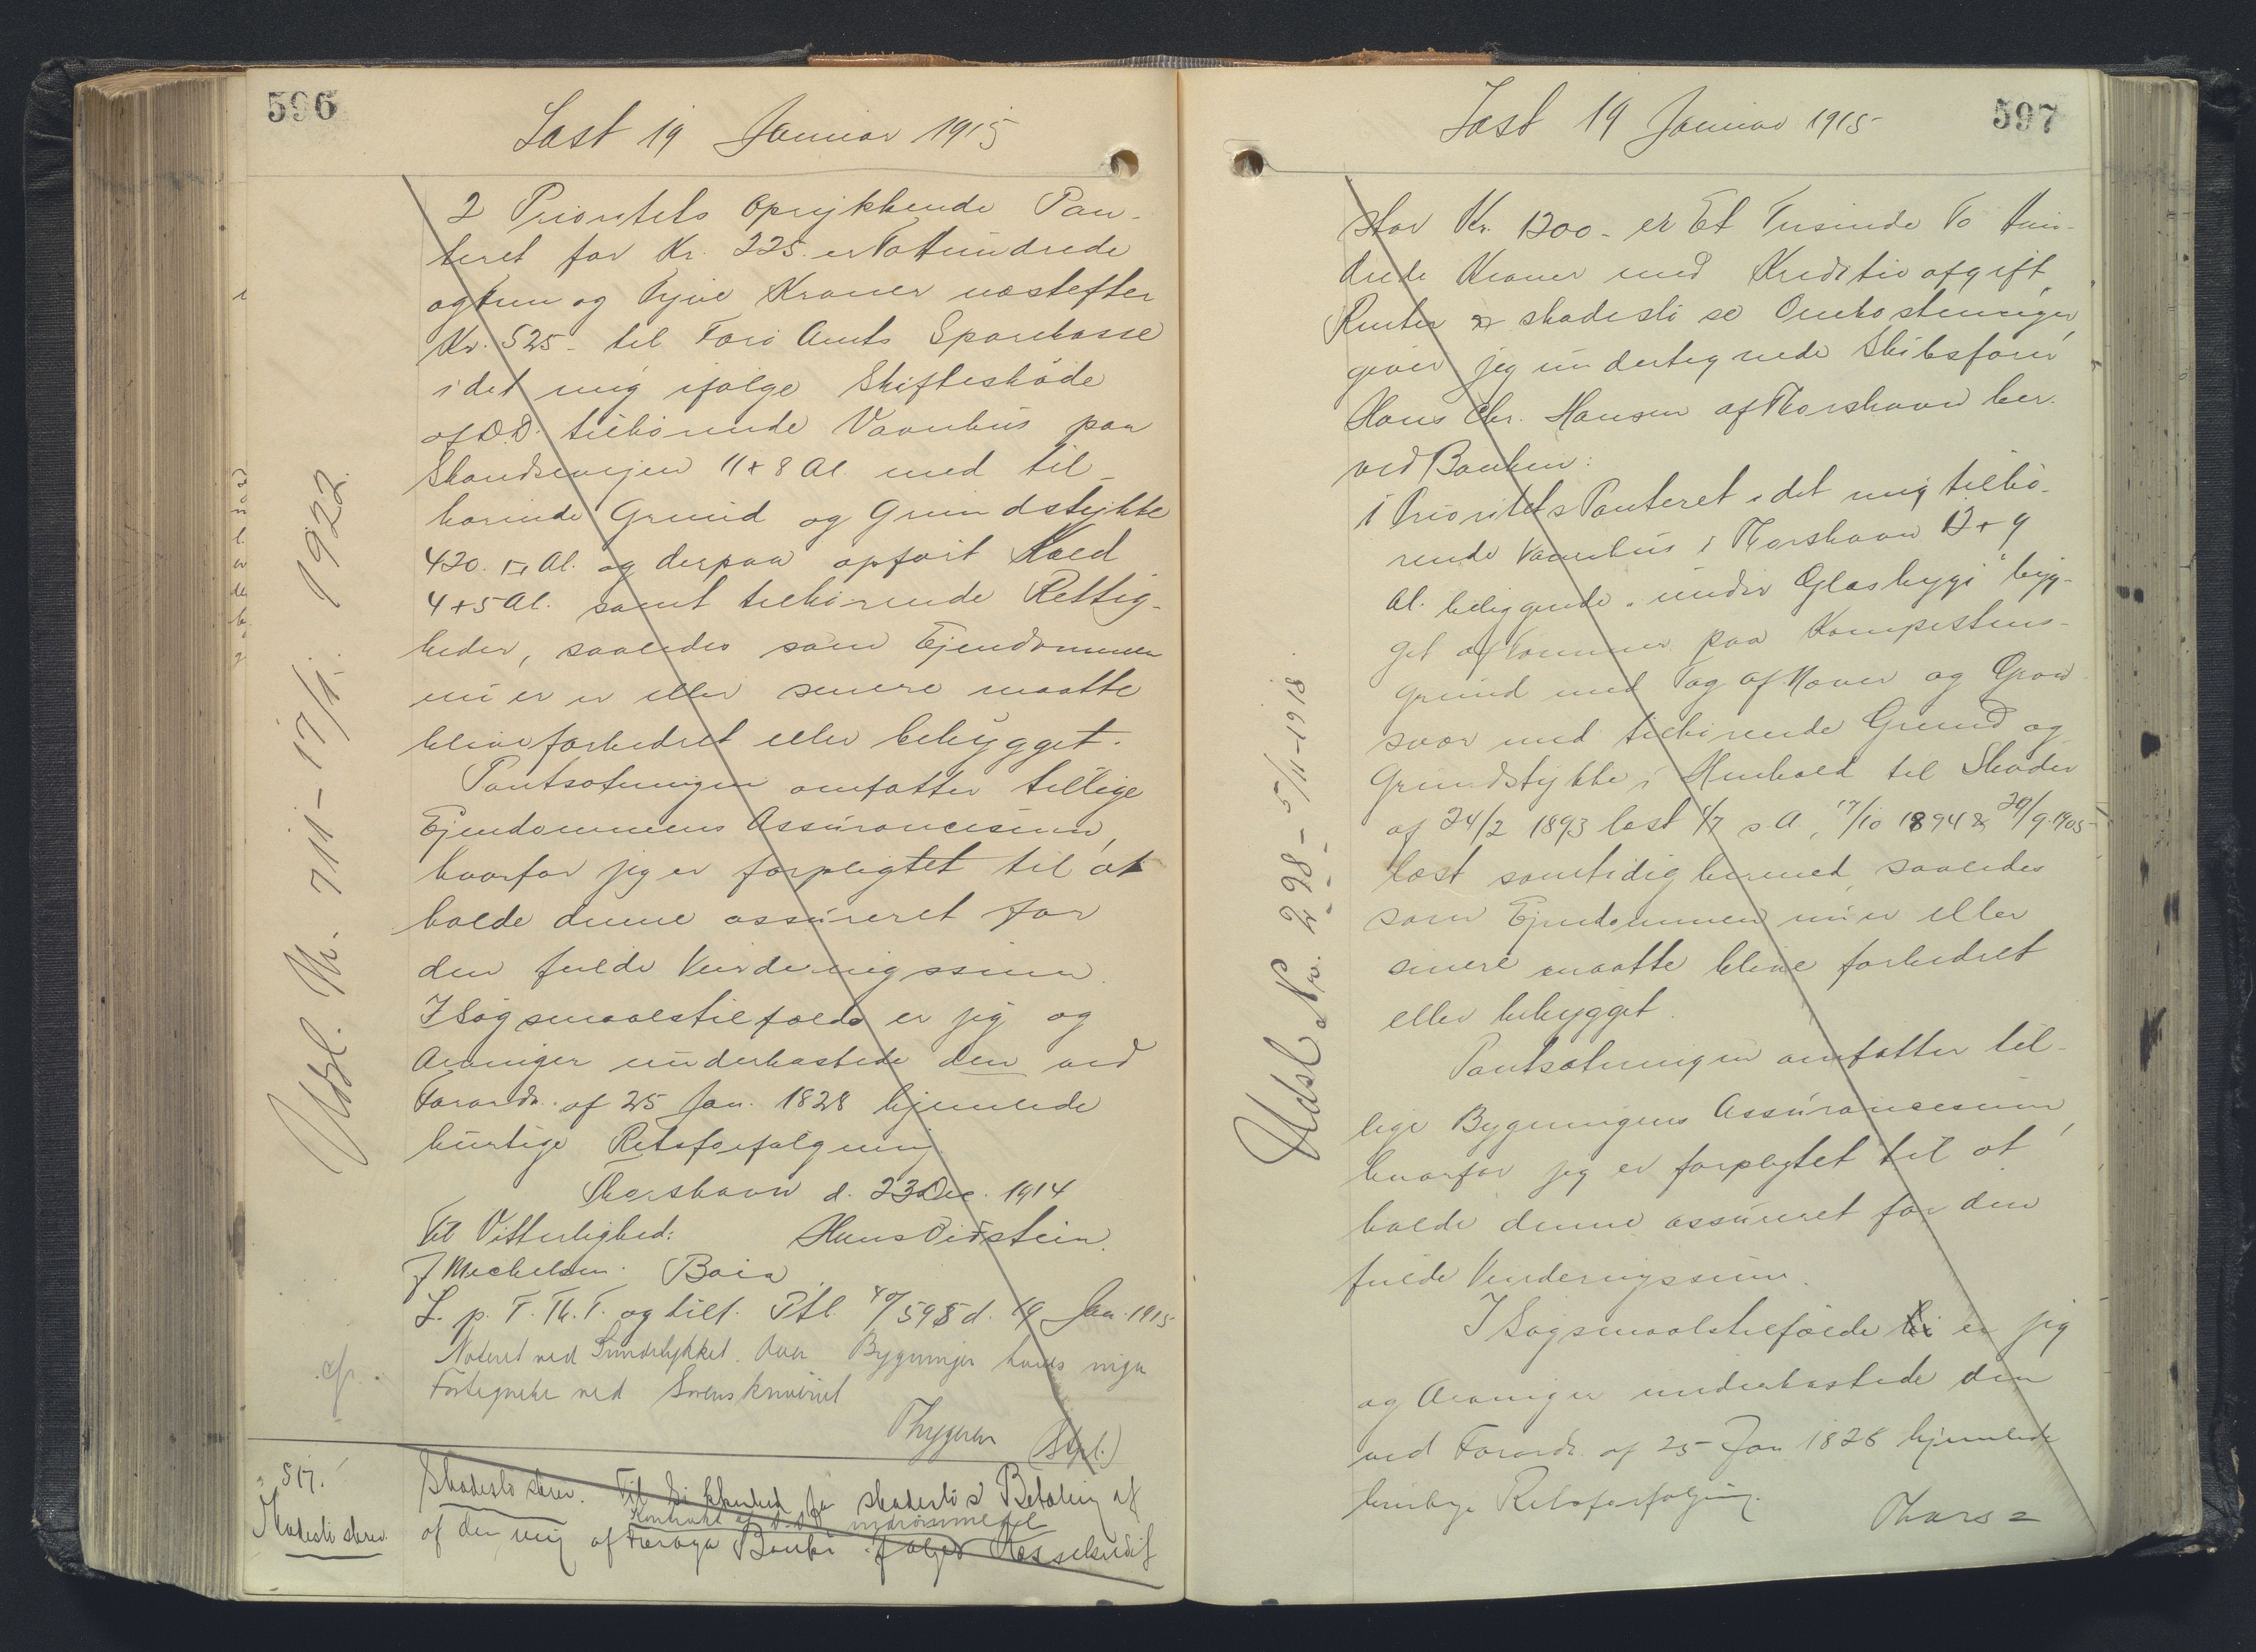 596
Læst 19 Januar 1915
2 Prioritets oprykkende Pan-
teret for Kr. 225. er To Hundrede
og fem og Tyve Kroner næstefter
Kr. 525- til Færø Amts Sparekasse
i det mig ifølge Skifteskøde
af D.D. tilhørende Vaanhus paa
Skandsevejen 11 + 8 Al. med til-
hørende Grund og Grundstykke
420. □ Al. og derpaa opført
4 + 5 Al. samt tilhørende Rettig-
heder, saaledes som Ejendommen
nu er er eller senere maatte
blive forbedret eller bebygget.
Pantsætningen omfatter tillige
Ejendommens Assurancesum,
hvorfor jeg er forpligtet til at
holde denne assureret for
den fulde Vurderingssum.
I Søgsmaalstilfælde er jeg og
Arvinger underkastede den ved
Forordn. af 25 Jan. 1828 hjemlede
hurtige Retsforfølgning.
Thorshavn d. 23 Dec. 1914
Til Vitterlighed: Hans Vidstein.
J Mechelsen. Boia
L. p. T. Th. T. og tilf. Ptl. 40/598 d. 19 Jan. 1915
Noteret ved Grundstykket. Over Bygninger haves ingen
Fortegnelse ved Sorenskriveriet
Thygesen (Stpl.)
Udsl. Nr. 711 - 17/1. 1922.
517.
Skadesløsbrev.
Skadesløsbrev. Til Sikkerhed for skadesløs Betaling af
Kontrakt af D.D. indrømmede
af den mig af Færøya Banki ifølge Kassekredit
597
Læst 19 Januar 1915
stor Kr. 1200- er Et Tusinde To Hun-
drede Kroner med Kreditivafgift,
Renter og skadesløse Omkostninger,
giver jeg undertegnede Skibsfører
Hans Chr. Hansen af Thorshavn her-
ved Banken:
1 Prioritets Panteret i det mig tilhø-
rende Vaanhus i Thorshavn 12 + 9
Al. beliggende "undir Glasbygi" byg-
get af Tømmer paa Kampestens-
grund med Tag af Næver og Grøn-
svær med tilhørende Grund og
Grundstykke i Henhold til Skøder
af 24/2 1893 læst 1/7 s. A., 17/10 1894 & 29/9 1905
læst samtidig hermed, saaledes
som Ejendommen nu er eller
senere maatte blive forbedret
eller bebygget.
Pantsætningen omfatter til-
lige Bygningens Assurancesum,
hvorfor jeg er forpligtet til at
holde denne assureret for den
fulde Vurderingssum.
I Søgsmaalstilfælde er jeg
og Arvinger underkastede den
ved Forordn. af 25 Jan 1828 hjemlede
hurtige Retsforfølgning.
Thors=
Udsl. Nr. 298 - 5/11-1918.